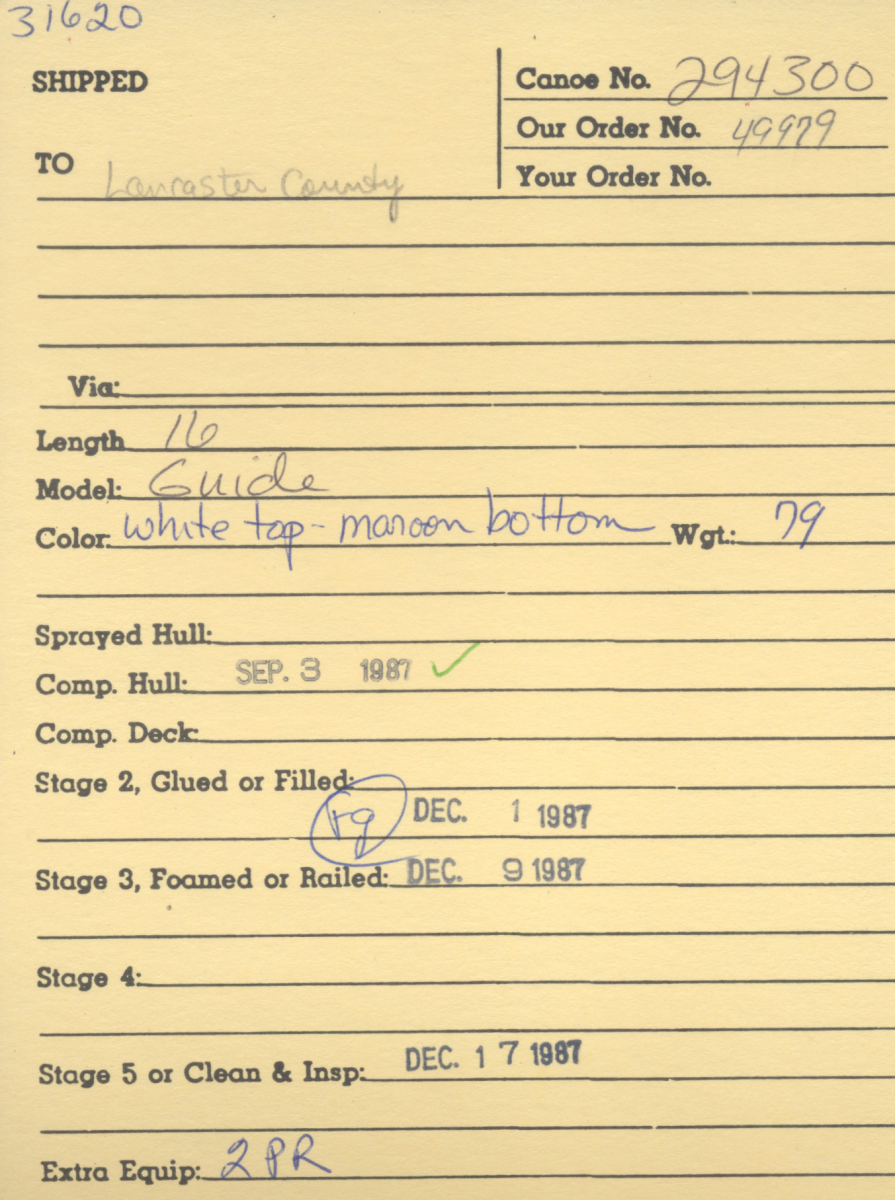 31620
SHIPPED
Canoe No. 294300
Our Order No. 49979
TO Lancaster County
Your Order No.
Via:
Length 16
Model: Guide
Color: white top - maroon bottom Wgt.: 79
Sprayed Hull:
Comp. Hull: SEP. 3 1987 ✓
Comp. Deck:
Stage 2, Glued or Filled:
rg DEC. 1 1987
Stage 3, Foamed or Railed: DEC. 9 1987
Stage 4:
Stage 5 or Clean & Insp: DEC. 17 1987
Extra Equip: 2 PR